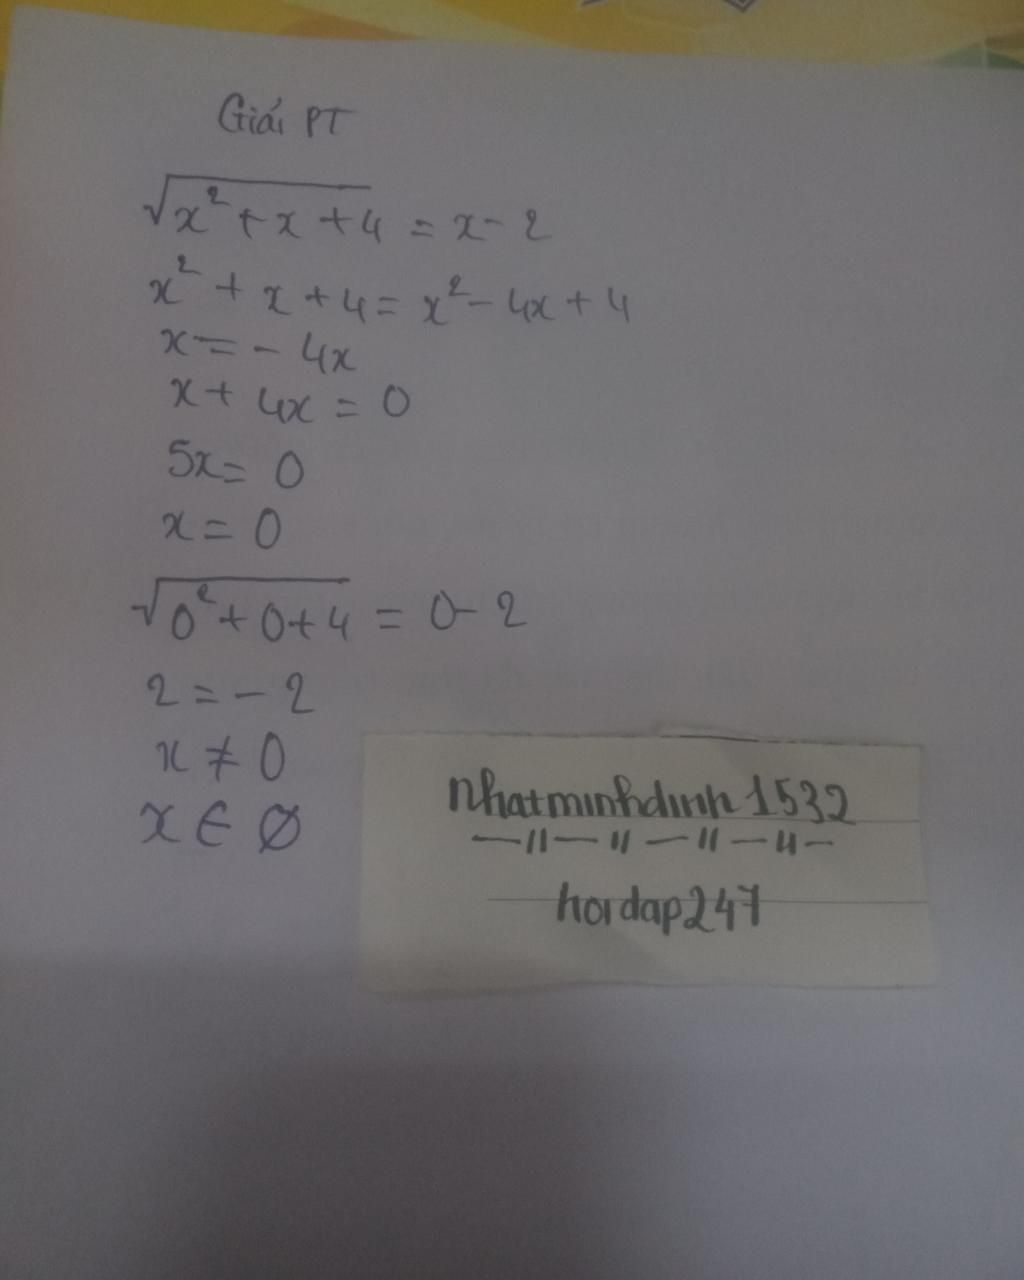 Giải PT
√(x² + x + 4) = x - 2
x² + x + 4 = x² - 4x + 4
x = - 4x
x + 4x = 0
5x = 0
x = 0
√(0² + 0 + 4) = 0 - 2
2 = - 2
x ≠ 0
x ∈ ∅
nhatminhdinh1532
—11— 11 —11 —11—
hoidap247